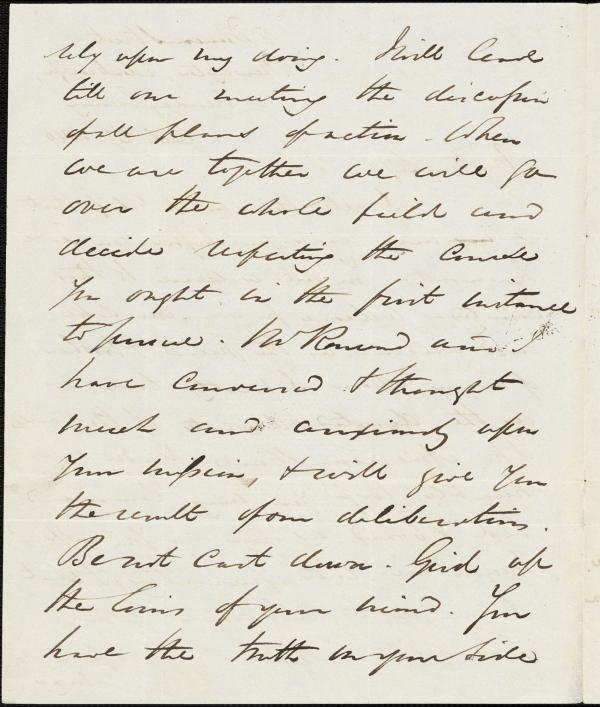 rely upon my doing. I will leave
till our meeting the discussion
of all plans of action. When
we are together we will go
over the whole field and
decide respecting the course
you ought in the first instance
to pursue. Mr Remond and I
have conversed & thought
much and anxiously upon
your mission, & will give you
the result of our deliberations.
Be not cast down. Gird up
the loins of your mind. You
have the truth on your side